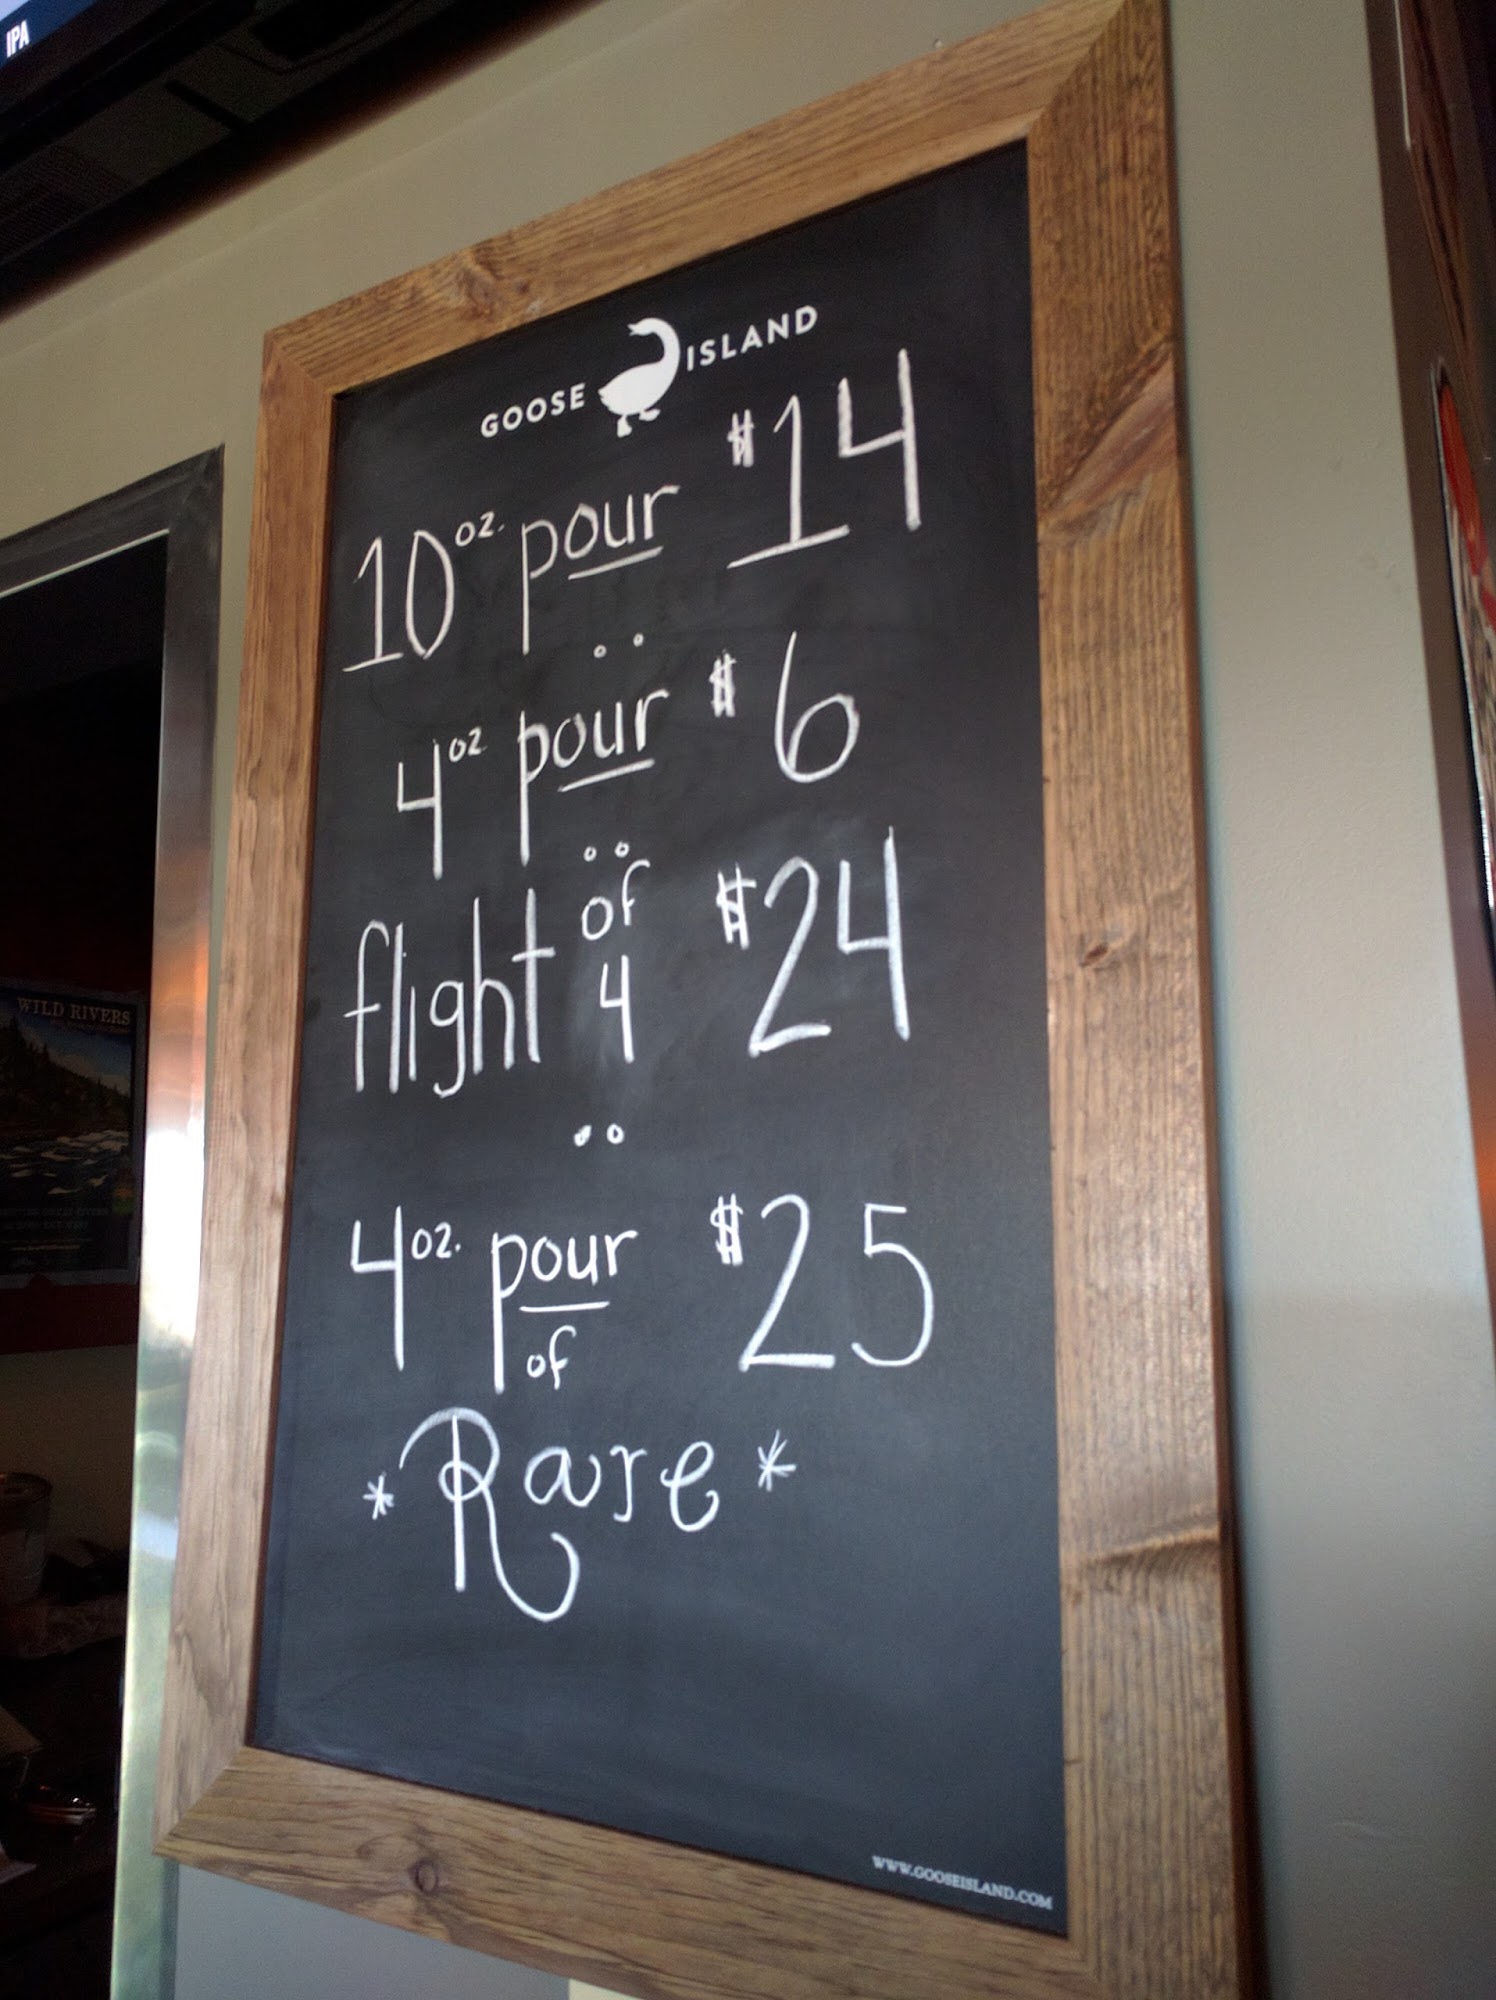 IPA
GOOSE ISLAND
10 oz. pour $14
4 oz pour $6
flight of 4 $24
4 oz. pour of $25
*Rare*
WWW.GOOSEISLAND.COM
WILD RIVERS